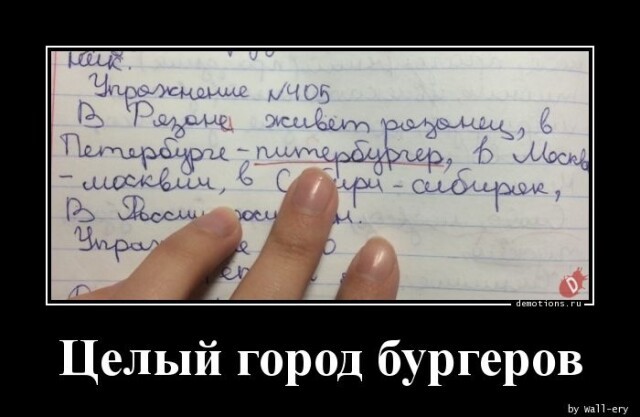 ник.
Упражнение №405
В Рязане живёт рязанец, в
Петербурге - питербургер, в Москв
- москвич, в Сибири - сибиряк,
В России
D
demotions.ru
Целый город бургеров
by Wall-ery